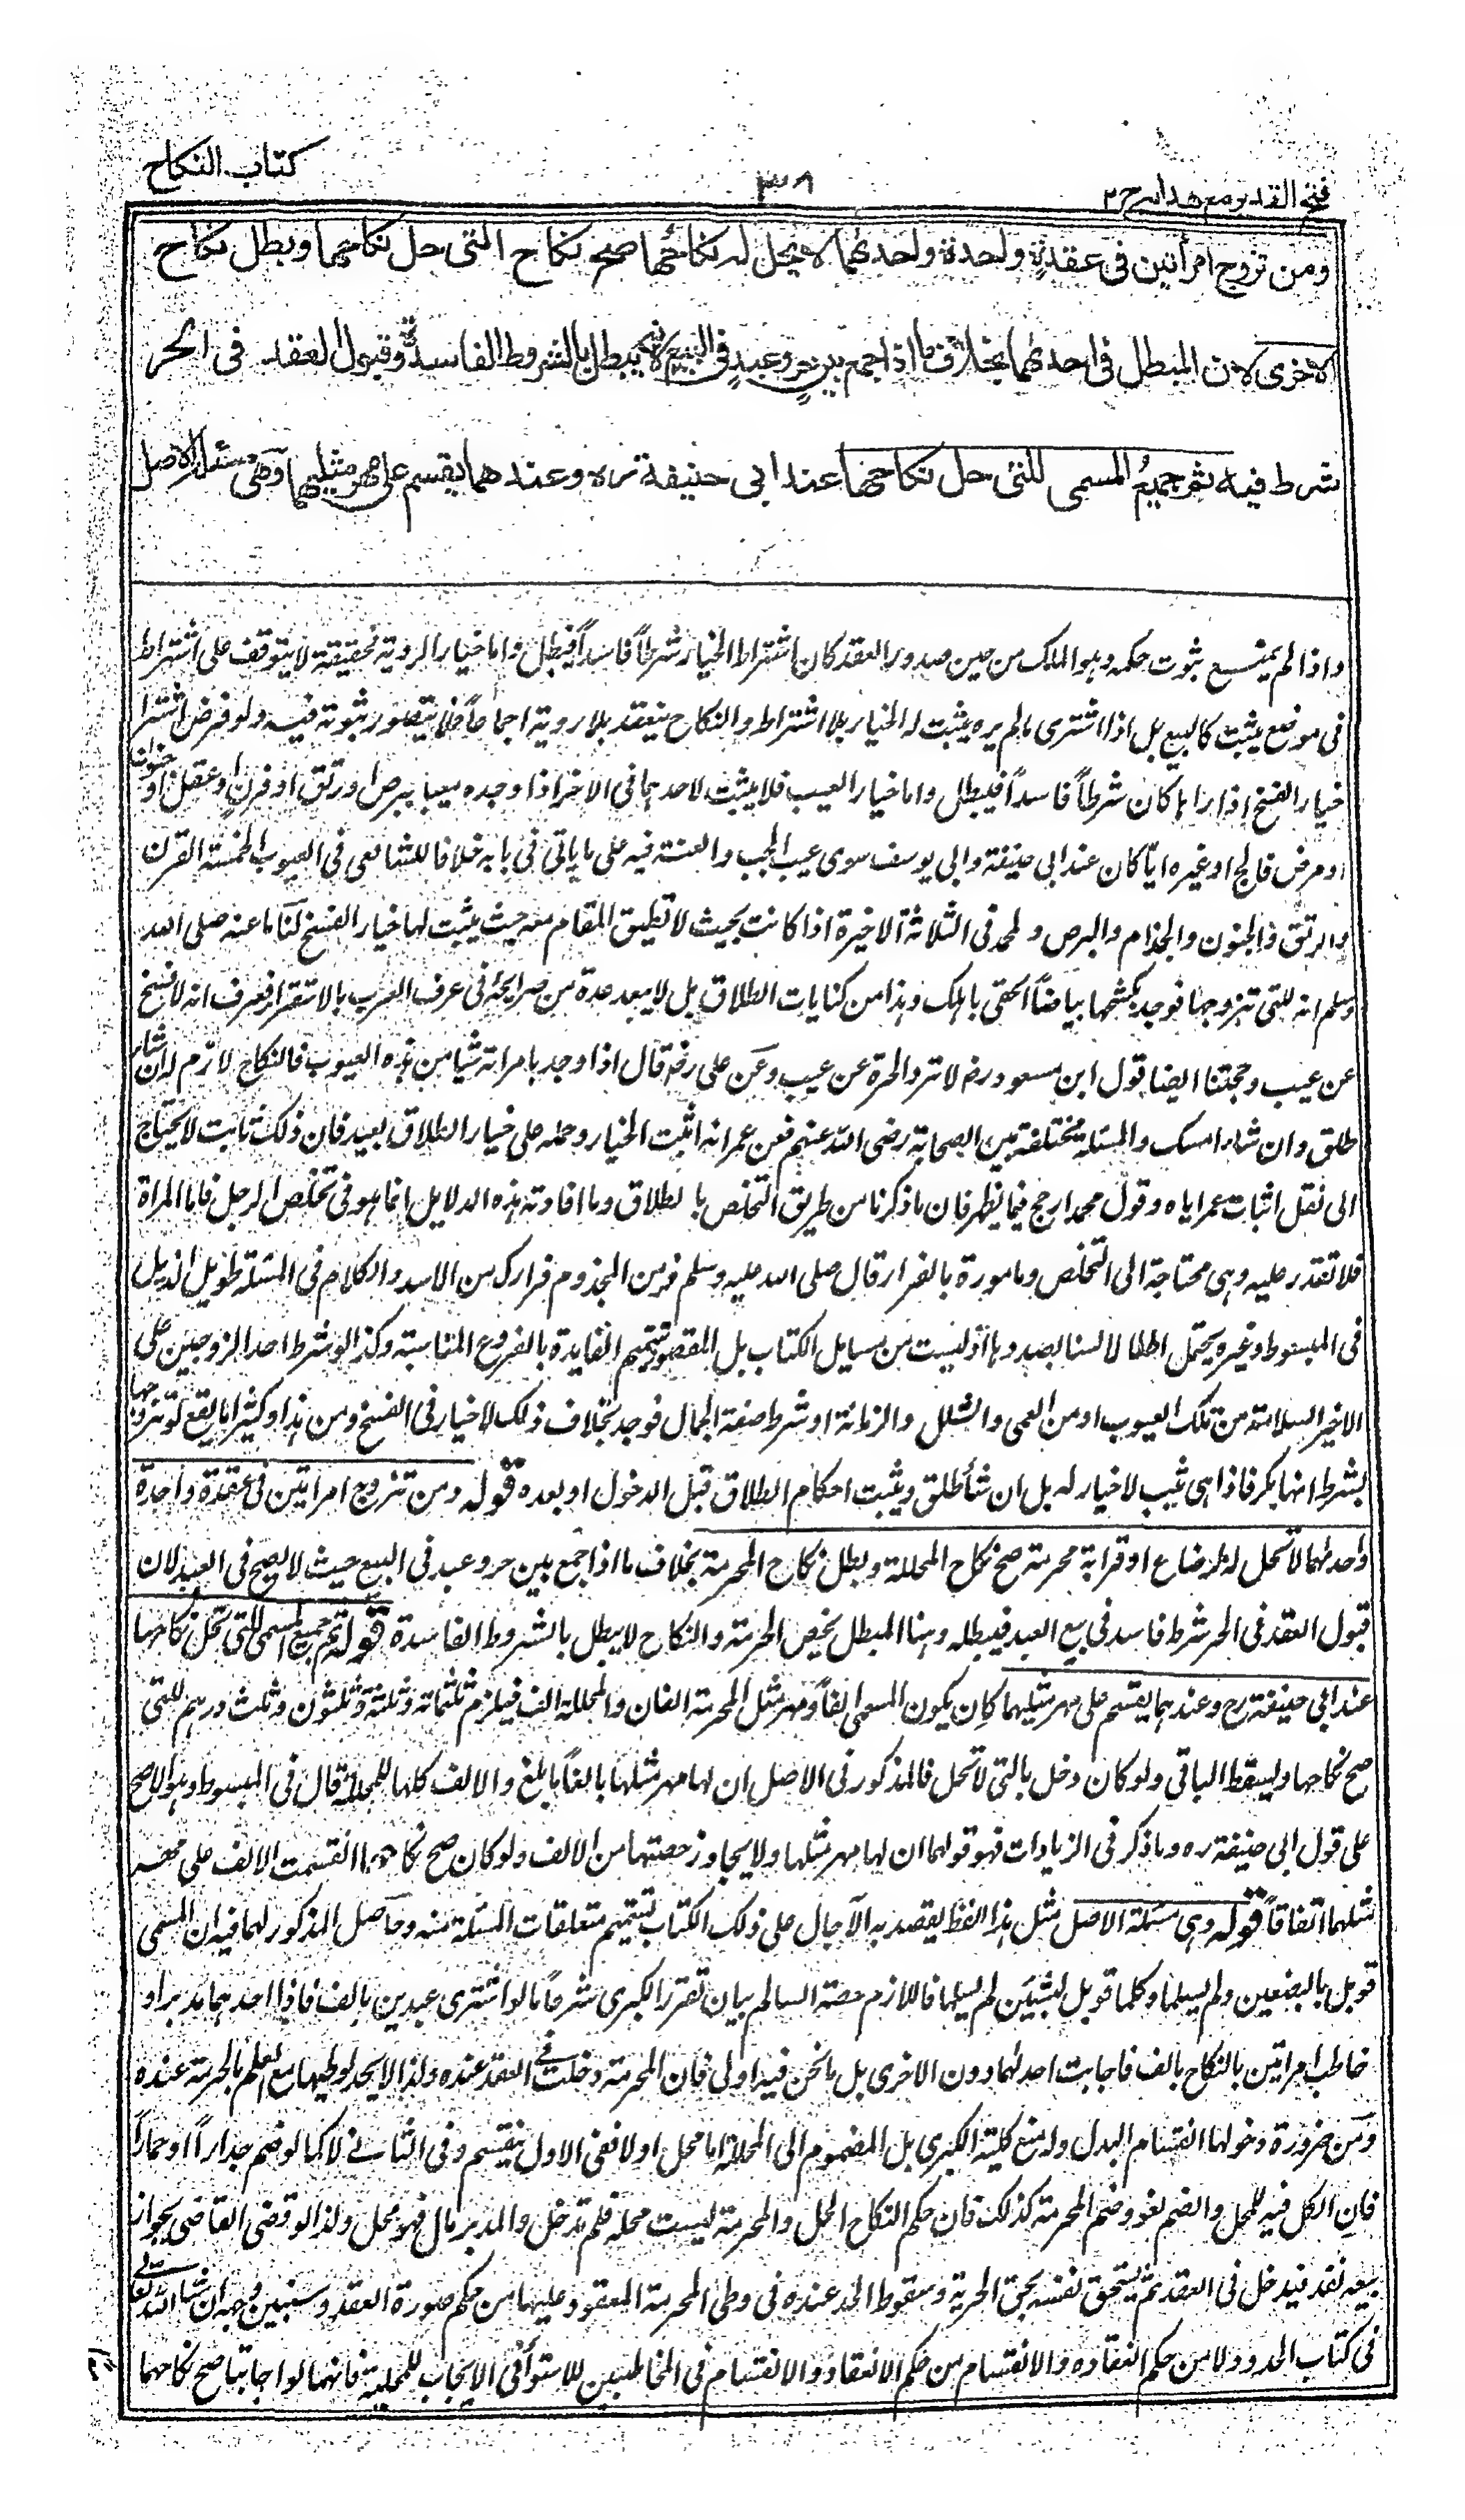 فتح القدير مع هدايه ج ٢
٣٨
كتاب النكاح
ومن تزوج امرأتين فى عقدة واحدة واحدىهما لا يحل له نكاحها صح نكاح التى حل نكاحها وبطل نكاح
الاخرى لان المبطل فى احدىهما بخلاف ما اذا جمع بين حر وعبد فى البيع لانه يبطل بالشروط الفاسدة وقبول العقد فى الحر
شرط فيه ثم جميع المسمى للتى حل نكاحها عند ابى حنيفة ره وعندهما يقسم على مهر مثليهما وهى مسئلة الاصل
واذا لم يمتنع ثبوت حكمه وهو الملك من حين صدور العقد كان اشتراط الخيار شرطاً فاسداً فيبطل واما خيار الروية فحقيقته لا يتوقف على اشتراط
فى موضع يثبت كالبيع بل اذا اشترى ما لم يره يثبت له الخيار بلا اشتراط والنكاح ينعقد بلا روية اجماعاً فلا يتصور ثبوته فيه ولو فرض اشترا
خيار الفسخ اذا راها كان شرطاً فاسداً فيبطل واما خيار العيب فلا يثبت لاحدهما فى الاخر اذا وجده معيبا ببرص او رتق او قرن او عقل او جنون
او مرض فالج او غيره ايّا كان عند ابى حنيفة وابى يوسف سوى عيب الجب والعنة فيه على ما ياتى فى بابه خلافا للشافعى فى العيوب الخمسة القرن
والرتق والجنون والجذام والبرص ولمحمد فى الثلاثة الاخيرة اذا كانت بحيث لا تطيق المقام معه حيث يثبت لها خيار الفسخ لنا ما عنه صلى الله
وسلم انه للتى تزوجها فوجد بكشحها بياضاً الحقى باهلك وهذا من كنايات الطلاق بل لا يبعد عده من صرايحه فى عرف العرب بالاستقراء فعرف انه لا فسخ
عن عيب وحجتنا ايضا قول ابن مسعود رض لا ترد الحرة عن عيب وعن على رض قال اذا وجد بامراته شيا من هذه العيوب فالنكاح لازم له ان شاء
طلق وان شاء امسك والمسئلة مختلفة بين الصحابة رضى الله عنهم فعن عمر انه اثبت الخيار وحمله على خيار الطلاق بعيد فان ذلك ثابت لا يحتاج
الى نقل اثبات عمر اياه وقول محمد ارجح فيما يظهر فان ما ذكرنا من طريق التخلص بالطلاق وما افادته هذه الدلايل انما هو فى تخلص الرجل فاما المراة
فلا تقدر عليه وهى محتاجة الى التخلص ومامورة بالفرار قال صلى الله عليه وسلم فر من المجذوم فرارك من الاسد والكلام فى المسئلة طويل الذيل
فى المبسوط وغيره يحتمل اطالة لسنا بصددها اذ ليست من مسايل الكتاب بل المقصود تتميم الفايدة بالفروع المناسبة وكذا لو شرط احد الزوجين على
الاخر السلامة من تلك العيوب او من العمى والشلل والزمانة او شرط صفة الجمال فوجد بخلاف ذلك لا خيار فى الفسخ ومن هذا وكثيرا ما يقع لو تزوجها
بشرط انها بكر فاذا هى ثيب لا خيار له بل ان شأ طلق ويثبت احكام الطلاق قبل الدخول او بعده قوله ومن تزوج امراتين فى عقدة واحدة
واحدىهما لا تحل له لرضاع او قرابة محرمة صح نكاح المحللة وبطل نكاح المحرمة بخلاف ما اذا جمع بين حر وعبد فى البيع حيث لا يصح فى العبد لان
قبول العقد فى الحر شرط فاسد فى بيع العبد فيبطله وهنا المبطل يخص المحرمة والنكاح لا يبطل بالشروط الفاسدة قوله ثم جميع المسمى للتى تحل نكاحها
عند ابى حنيفة رح وعندهما يقسم على مهر مثليهما كان يكون المسمى الفاً ومهر مثل المحرمة الفان والمحللة الف فيلزم ثلثمائة وثلثة وثلثون وثلث درهم للتى
صح نكاحها ويسقط الباقى ولو كان دخل بالتى لا تحل فالمذكور فى الاصل ان لها مهر مثلها بالغاً ما بلغ والالف كلها للمحللة قال فى المبسوط وهو الاصح
على قول ابى حنيفة ره وما ذكر فى الزيادات فهو قولهما ان لها مهر مثلها ولا يجاوز حصتها من الالف ولو كان صح نكاحهما انقسمت الالف على مهر
مثلهما اتفاقاً قوله وهى مسئلة الاصل مثل هذا اللفظ يقصد به الاحال على ذلك الكتاب لتتميم متعلقات المسئلة منه وحاصل المذكور لهما فيه ان المسمى
قوبل بالبضعين ولم يسلما وكلما قوبل بشيئين لم يسلما فاللازم حصة السالم بيان تقرر الكبرى شرعاً ما لو اشترى عبدين بالف فاذا احدهما مدبر او
خاطب امراتين بالنكاح بالف فاجابت احدىهما دون الاخرى بل ما نحن فيه اولى فان المحرمة دخلت فى العقد عنده ولذا لا يحد لوطيها مع العلم بالحرمة عنده
ومن ضرورة دخولها انقسام البدل وله منع كلية الكبرى بل المضموم الى المحللة اما محل او لا ففى الاول ينقسم وفى الثانى لا كما لو ضم جداراً او حماراً
فان الكل فيه للمحل والضم لغو وضم المحرمة كذلك فان حكم النكاح الحل والمحرمة ليست محله فلم تدخل والمدبر مال فهو محل ولذا لو قضى القاضى بجواز
بيعه نفذ فيدخل فى العقد ثم يستحق نفسه بحق الحرية وسقوط الحد عنده فى وطى المحرمة المعقود عليها من حكم صورة العقد وسنبين وجهه ان شاء الله تعالى
فى كتاب الحدود لا من حكم انعقاده والانقسام من حكم الانعقاد والانقسام فى المخاطبتين للاستوأ فى الايجاب للمحلية فانهما لو اجابتا صح نكاحهما